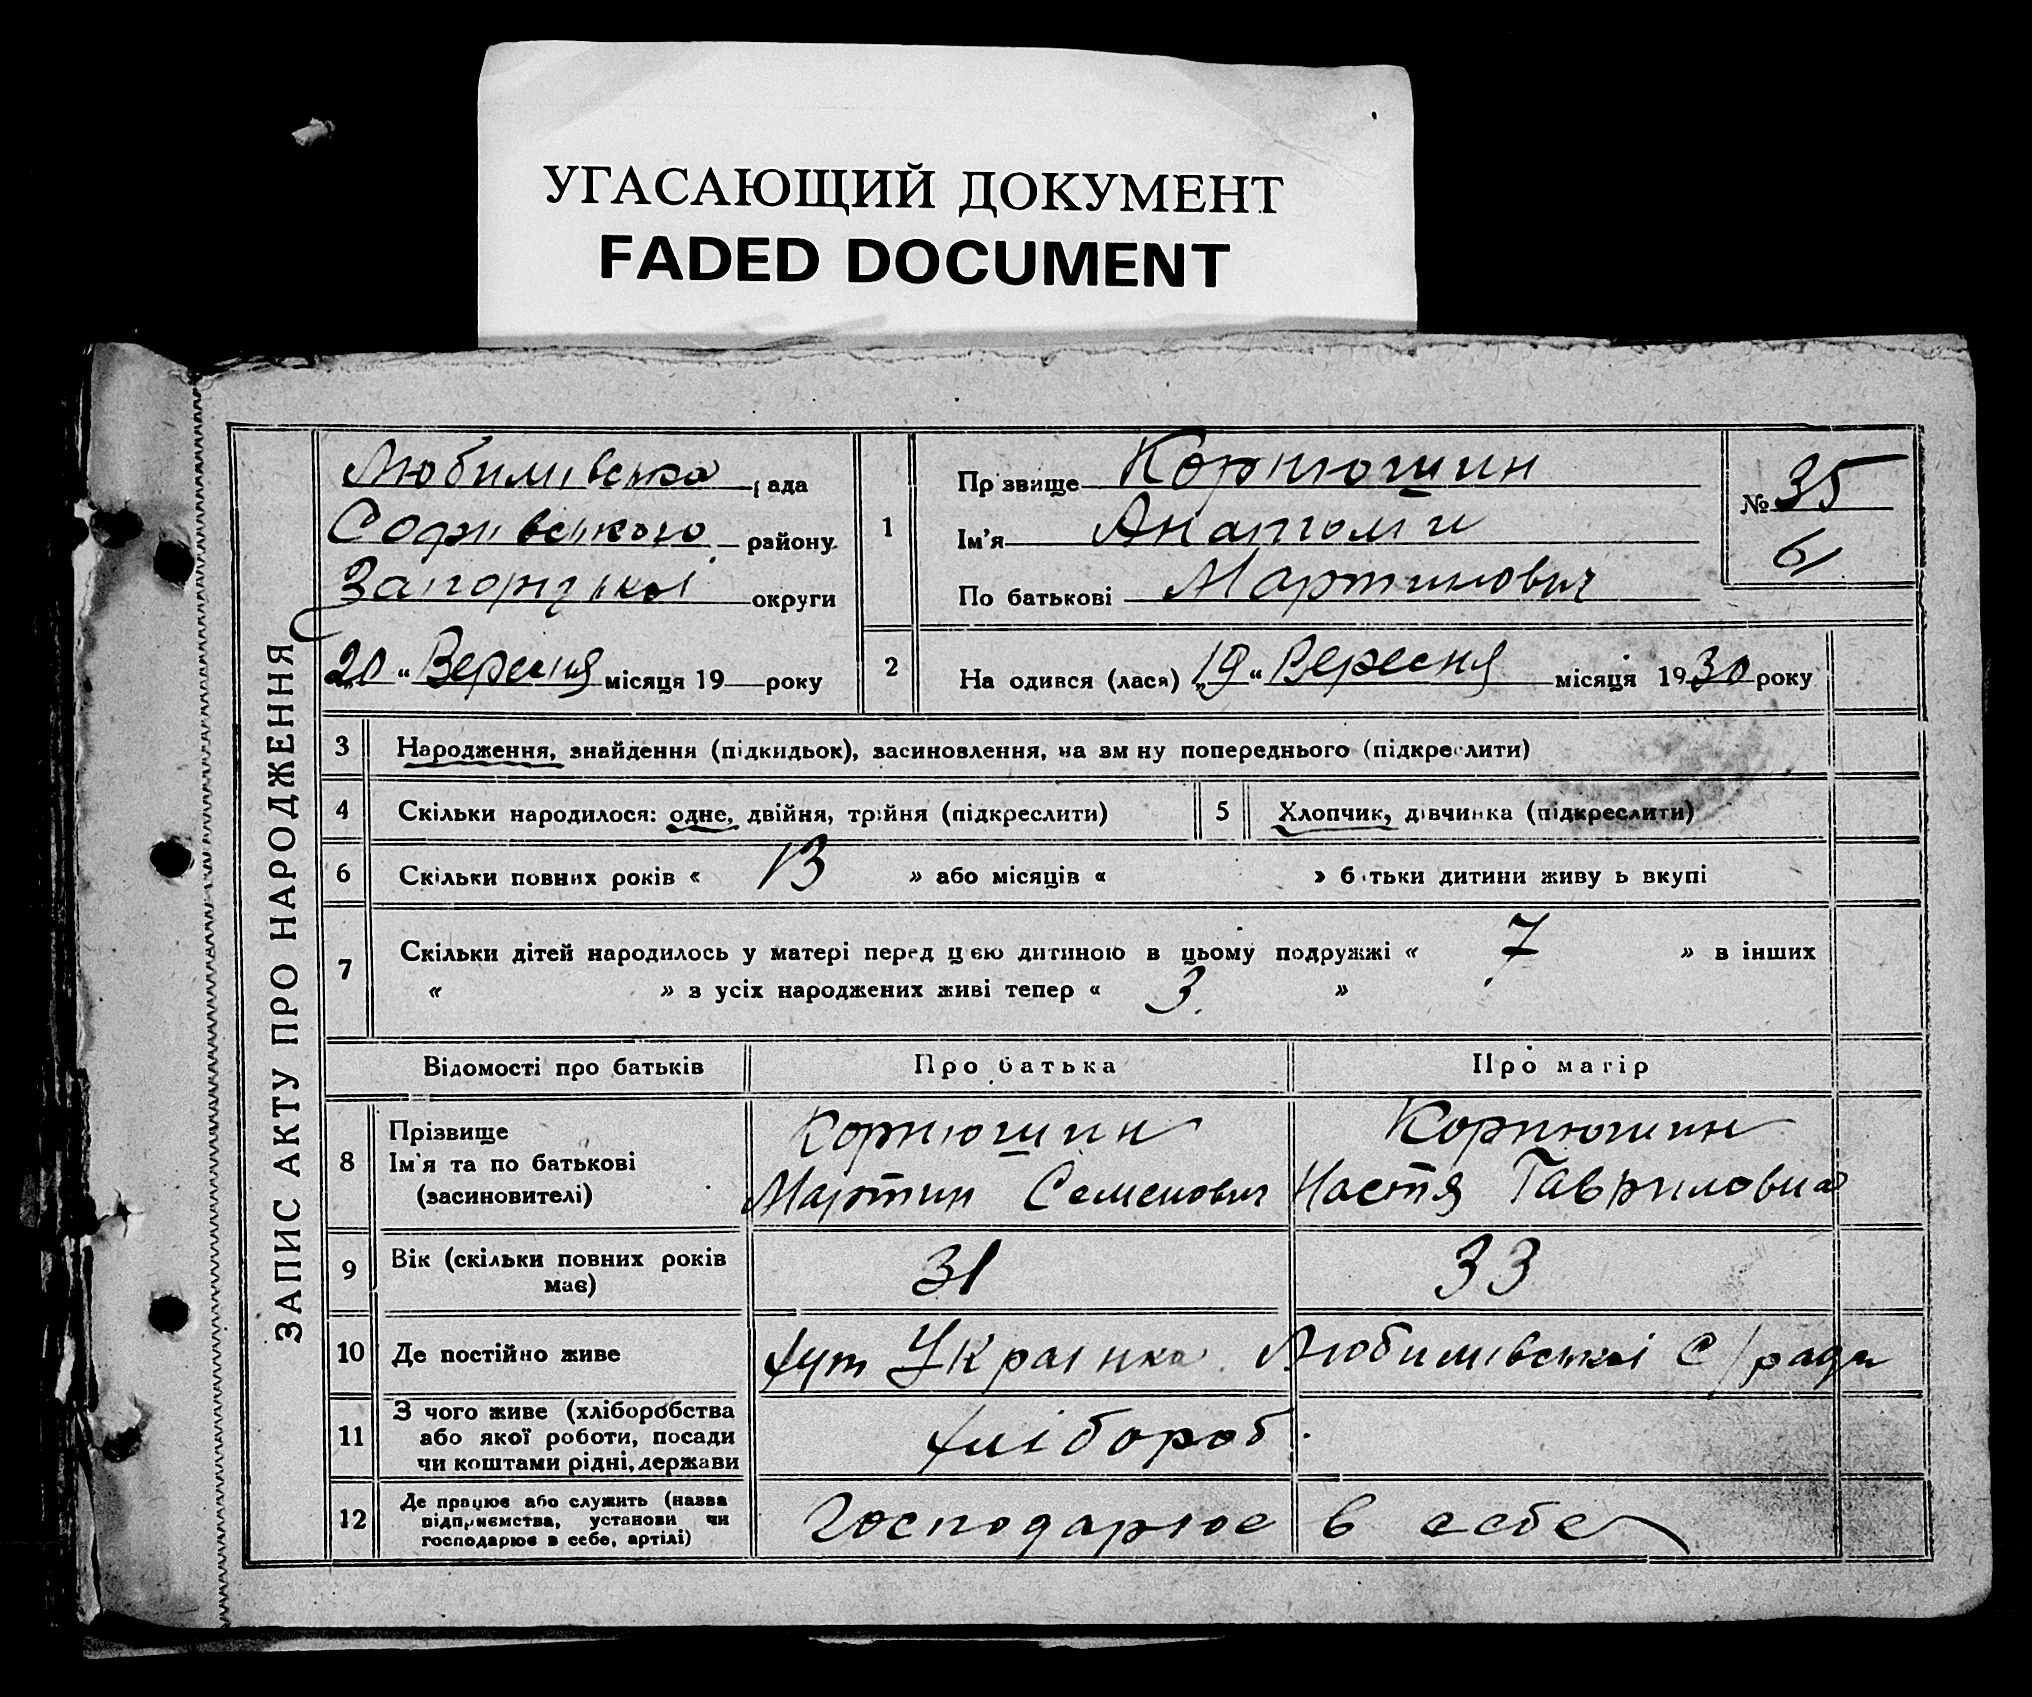 УГАСАЮЩИЙ ДОКУМЕНТ
FADED DOCUMENT
ЗАПИС АКТУ ПРО НАРОДЖЕННЯ
Любимівська рада
Софиівського району
Запорізькоі округи
20 „ Вересня місяця 19 року
1
Прізвище Корнюшин
Ім'я Анатолій
По батькові Мартинович
№ 35
61
2 На одився (лася) „19“ Вересня місяця 1930 року
3 Народження, знайдення (підкидьок), засиновлення, на зм ну попереднього (підкреслити)
4 Скільки народилося: одне, двійня, трійня (підкреслити) 5 Хлопчик, дівчинка (підкреслити)
6 Скільки повних років « 13 » або місяців « » б тьки дитини живу ь вкупі
7 Скільки дітей народилось у матері перед цією дитиною в цьому подружжі « 7 » в інших
« » з усіх народжених живі тепер « 3. »
Відомості про батьків Про батька Про матір
8 Прізвище
Ім'я та по батькові
(засиновителі)
Корнюшин
Мартин Семенович
Корнюшин
Настя Гавриловна
9 Вік (скільки повних років
має)
31 33
10 Де постійно живе хут Украінка. Любимівськоі С/ради
11 З чого живе (хліборобства
або якої роботи, посади
чи коштами рідні, держави
хлібороб.
12 Де працює або служить (назва
підприємства, установи чи
господарює в себе, артілі)
Господарює в себе